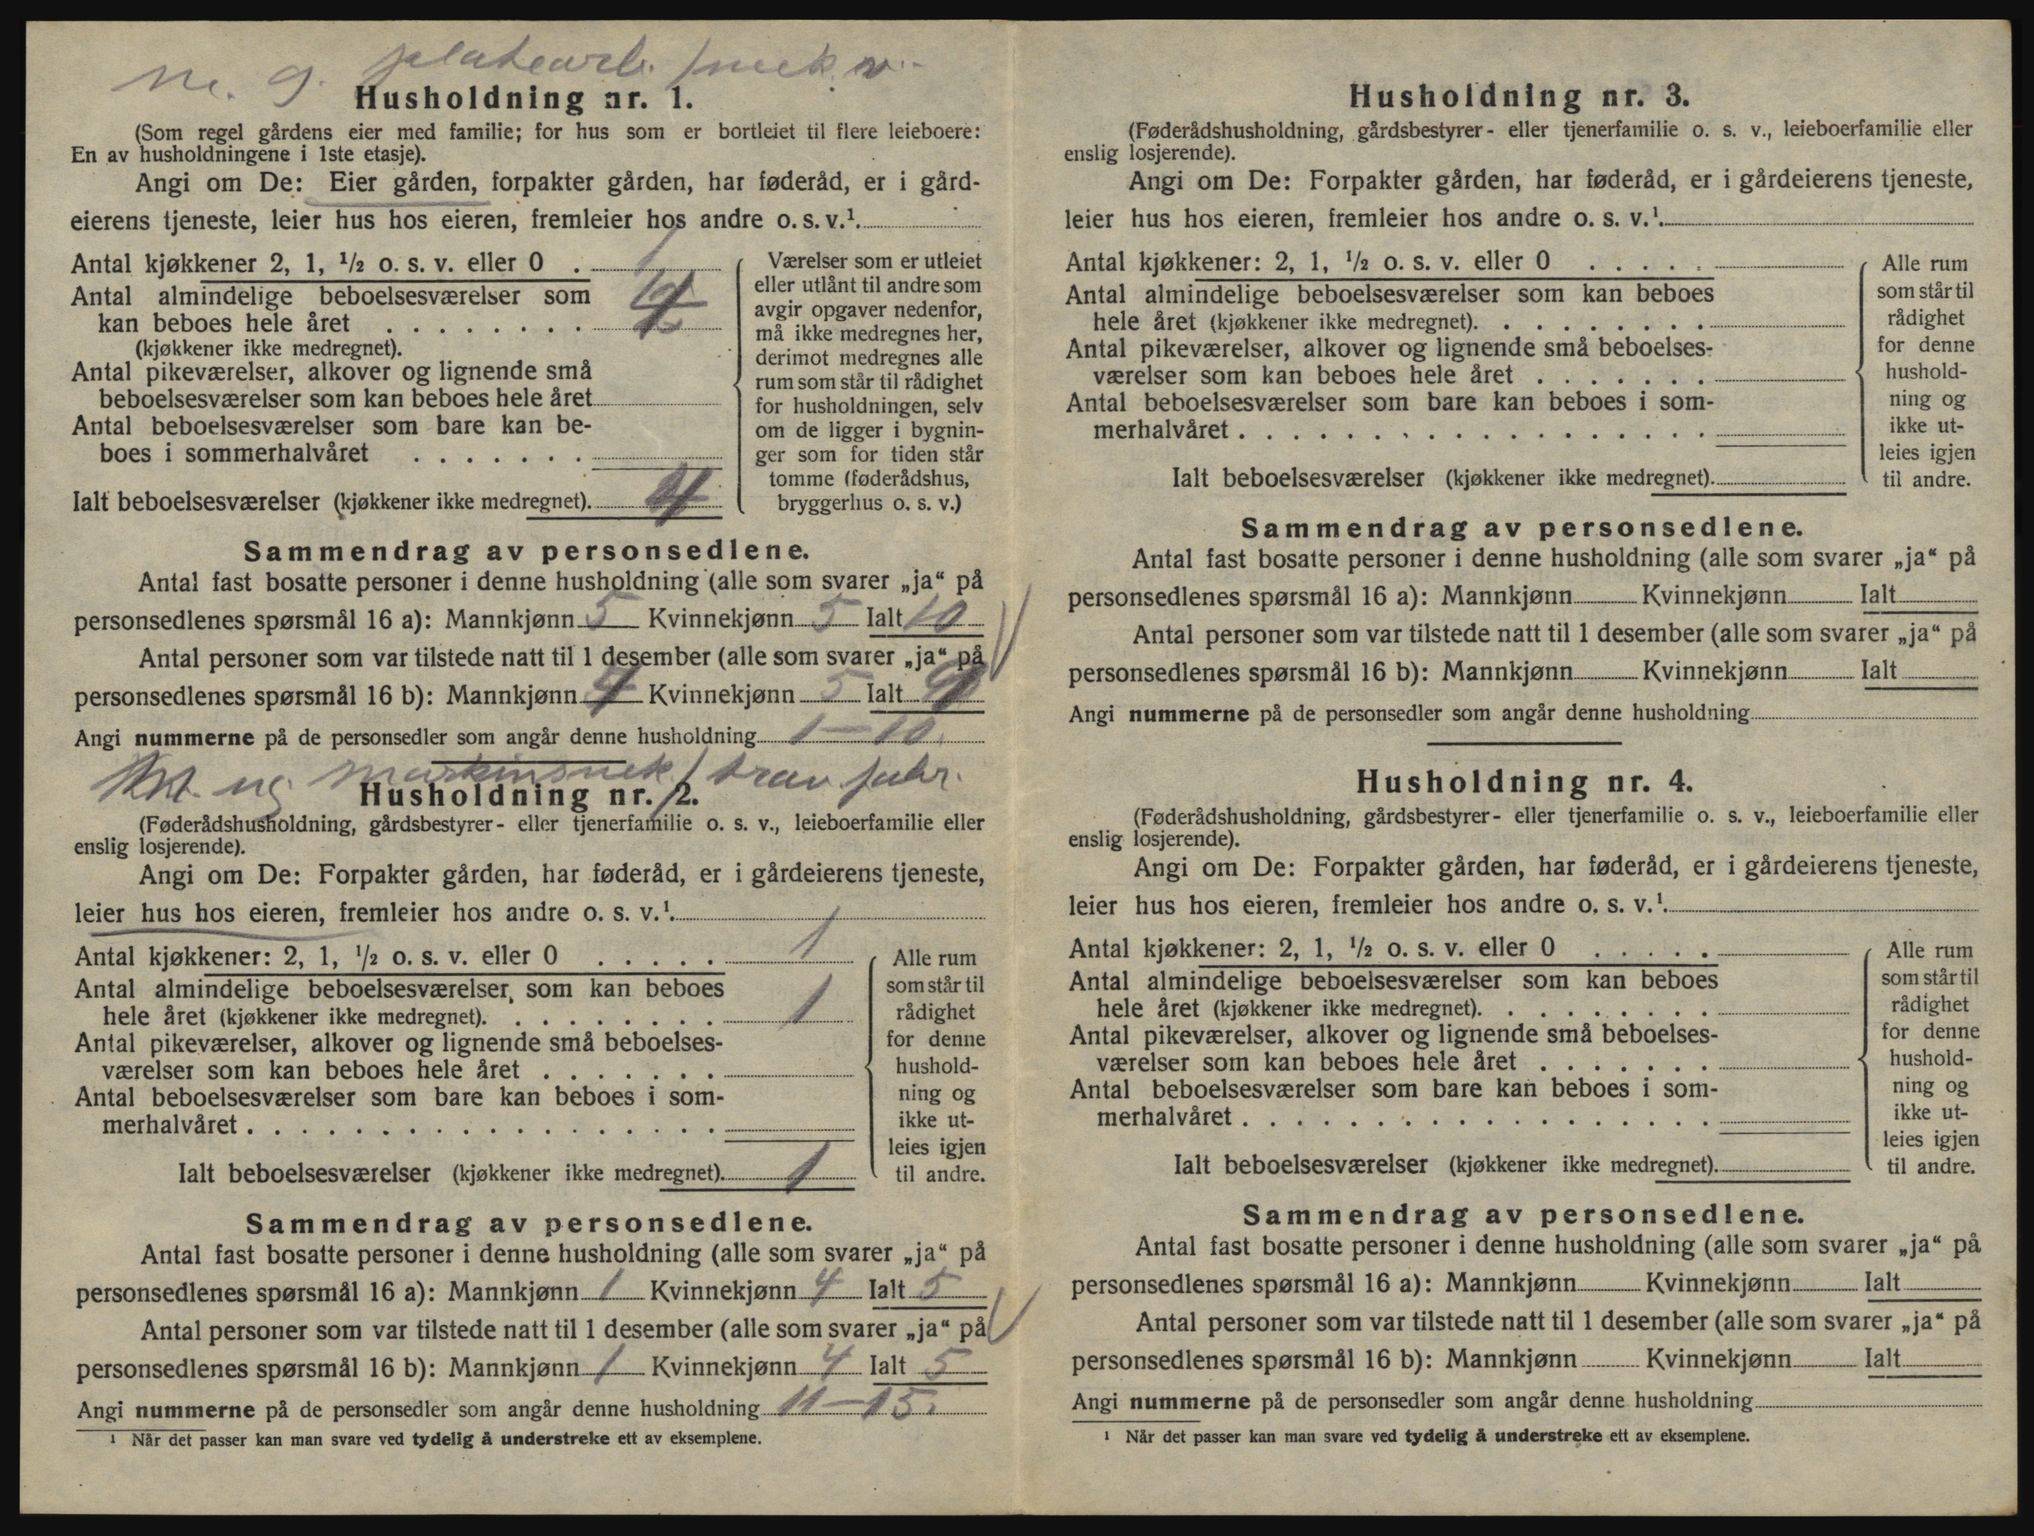 m. g. platearb. / mek. v.
Husholdning nr. 1.
(Som regel gårdens eier med familie; for hus som er bortleiet til flere leieboere:
En av husholdningene i 1ste etasje).
Angi om De: Eier gården, forpakter gården, har føderåd, er i gård-
eierens tjeneste, leier hus hos eieren, fremleier hos andre o. s. v.¹.
Antal kjøkkener 2, 1, ½ o. s. v. eller 0 . 1
Antal almindelige beboelsesværelser som
kan beboes hele året . . . . . . . . 4
(kjøkkener ikke medregnet).
Antal pikeværelser, alkover og lignende små
beboelsesværelser som kan beboes hele året
Antal beboelsesværelser som bare kan be-
boes i sommerhalvåret . . . . . . .
Ialt beboelsesværelser (kjøkkener ikke medregnet). 4
Værelser som er utleiet
eller utlånt til andre som
avgir opgaver nedenfor,
må ikke medregnes her,
derimot medregnes alle
rum som står til rådighet
for husholdningen, selv
om de ligger i bygnin-
ger som for tiden står
tomme (føderådshus,
bryggerhus o. s. v.)
Sammendrag av personsedlene.
Antal fast bosatte personer i denne husholdning (alle som svarer „ja“ på
personsedlenes spørsmål 16 a): Mannkjønn 5 Kvinnekjønn 5 Ialt 10
Antal personer som var tilstede natt til 1 desember (alle som svarer „ja“ på
personsedlenes spørsmål 16 b): Mannkjønn 4 Kvinnekjønn 5 Ialt 9
Angi nummerne på de personsedler som angår denne husholdning 1–10.
ug markinsmek / trav fabr.
Husholdning nr. 2.
(Føderådshusholdning, gårdsbestyrer- eller tjenerfamilie o. s. v., leieboerfamilie eller
enslig losjerende).
Angi om De: Forpakter gården, har føderåd, er i gårdeierens tjeneste,
leier hus hos eieren, fremleier hos andre o. s. v.¹.
Antal kjøkkener: 2, 1, ½ o. s. v. eller 0 . . . . . 1
Antal almindelige beboelsesværelser som kan beboes
hele året (kjøkkener ikke medregnet). . . . . . . . . 1
Antal pikeværelser, alkover og lignende små beboelses-
værelser som kan beboes hele året . . . . . . .
Antal beboelsesværelser som bare kan beboes i som-
merhalvåret . . . . . . . . . . . . . . . . . .
Ialt beboelsesværelser (kjøkkener ikke medregnet). 1
Alle rum
som står til
rådighet
for denne
hushold-
ning og
ikke ut-
leies igjen
til andre.
Sammendrag av personsedlene.
Antal fast bosatte personer i denne husholdning (alle som svarer „ja“ på
personsedlenes spørsmål 16 a): Mannkjønn 1 Kvinnekjønn 4 Ialt 5
Antal personer som var tilstede natt til 1 desember (alle som svarer „ja“ på
personsedlenes spørsmål 16 b): Mannkjønn 1 Kvinnekjønn 4 Ialt 5
Angi nummerne på de personsedler som angår denne husholdning 11–15.
¹ Når det passer kan man svare ved tydelig å understreke ett av eksemplene.
Husholdning nr. 3.
(Føderådshusholdning, gårdsbestyrer- eller tjenerfamilie o. s. v., leieboerfamilie eller
enslig losjerende).
Angi om De: Forpakter gården, har føderåd, er i gårdeierens tjeneste,
leier hus hos eieren, fremleier hos andre o. s. v.¹.
Antal kjøkkener: 2, 1, ½ o. s. v. eller 0 . . . . .
Antal almindelige beboelsesværelser som kan beboes
hele året (kjøkkener ikke medregnet). . . . . . . . .
Antal pikeværelser, alkover og lignende små beboelses-
værelser som kan beboes hele året . . . . . . .
Antal beboelsesværelser som bare kan beboes i som-
merhalvåret . . . . . . . . . . . . . . . . . .
Ialt beboelsesværelser (kjøkkener ikke medregnet).
Alle rum
som står til
rådighet
for denne
hushold-
ning og
ikke ut-
leies igjen
til andre.
Sammendrag av personsedlene.
Antal fast bosatte personer i denne husholdning (alle som svarer „ja“ på
personsedlenes spørsmål 16 a): Mannkjønn Kvinnekjønn Ialt
Antal personer som var tilstede natt til 1 desember (alle som svarer „ja“ på
personsedlenes spørsmål 16 b): Mannkjønn Kvinnekjønn Ialt
Angi nummerne på de personsedler som angår denne husholdning
Husholdning nr. 4.
(Føderådshusholdning, gårdsbestyrer- eller tjenerfamilie o. s. v., leieboerfamilie eller
enslig losjerende).
Angi om De: Forpakter gården, har føderåd, er i gårdeierens tjeneste,
leier hus hos eieren, fremleier hos andre o. s. v.¹.
Antal kjøkkener: 2, 1, ½ o. s. v. eller 0 . . . . .
Antal almindelige beboelsesværelser som kan beboes
hele året (kjøkkener ikke medregnet). . . . . . . . .
Antal pikeværelser, alkover og lignende små beboelses-
værelser som kan beboes hele året . . . . . . .
Antal beboelsesværelser som bare kan beboes i som-
merhalvåret . . . . . . . . . . . . . . . . . .
Ialt beboelsesværelser (kjøkkener ikke medregnet).
Alle rum
som står til
rådighet
for denne
hushold-
ning og
ikke ut-
leies igjen
til andre.
Sammendrag av personsedlene.
Antal fast bosatte personer i denne husholdning (alle som svarer „ja“ på
personsedlenes spørsmål 16 a): Mannkjønn Kvinnekjønn Ialt
Antal personer som var tilstede natt til 1 desember (alle som svarer „ja“ på
personsedlenes spørsmål 16 b): Mannkjønn Kvinnekjønn Ialt
Angi nummerne på de personsedler som angår denne husholdning
¹ Når det passer kan man svare ved tydelig å understreke ett av eksemplene.